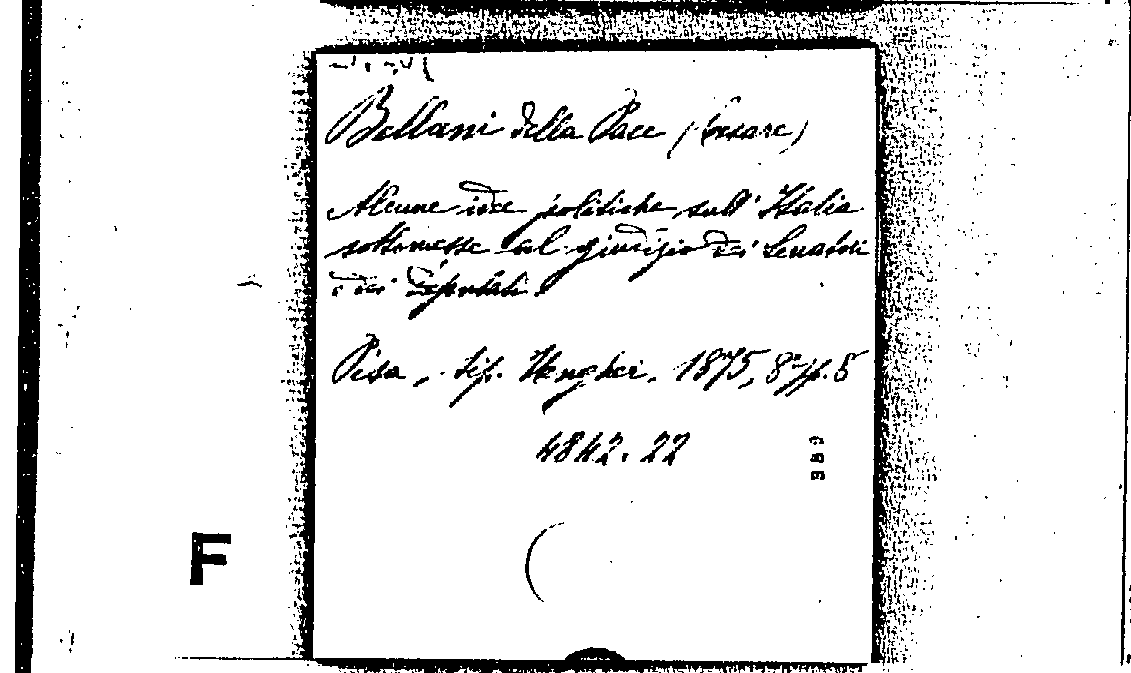 Bellani della Pace (Cesare)
Alcune idee politiche sull' Italia
sottomesse al giudizio dei Senatori
dei Deputati.
Pisa, tip. Ungher. 1875, 8º pp. 5
4842. 22
989
F